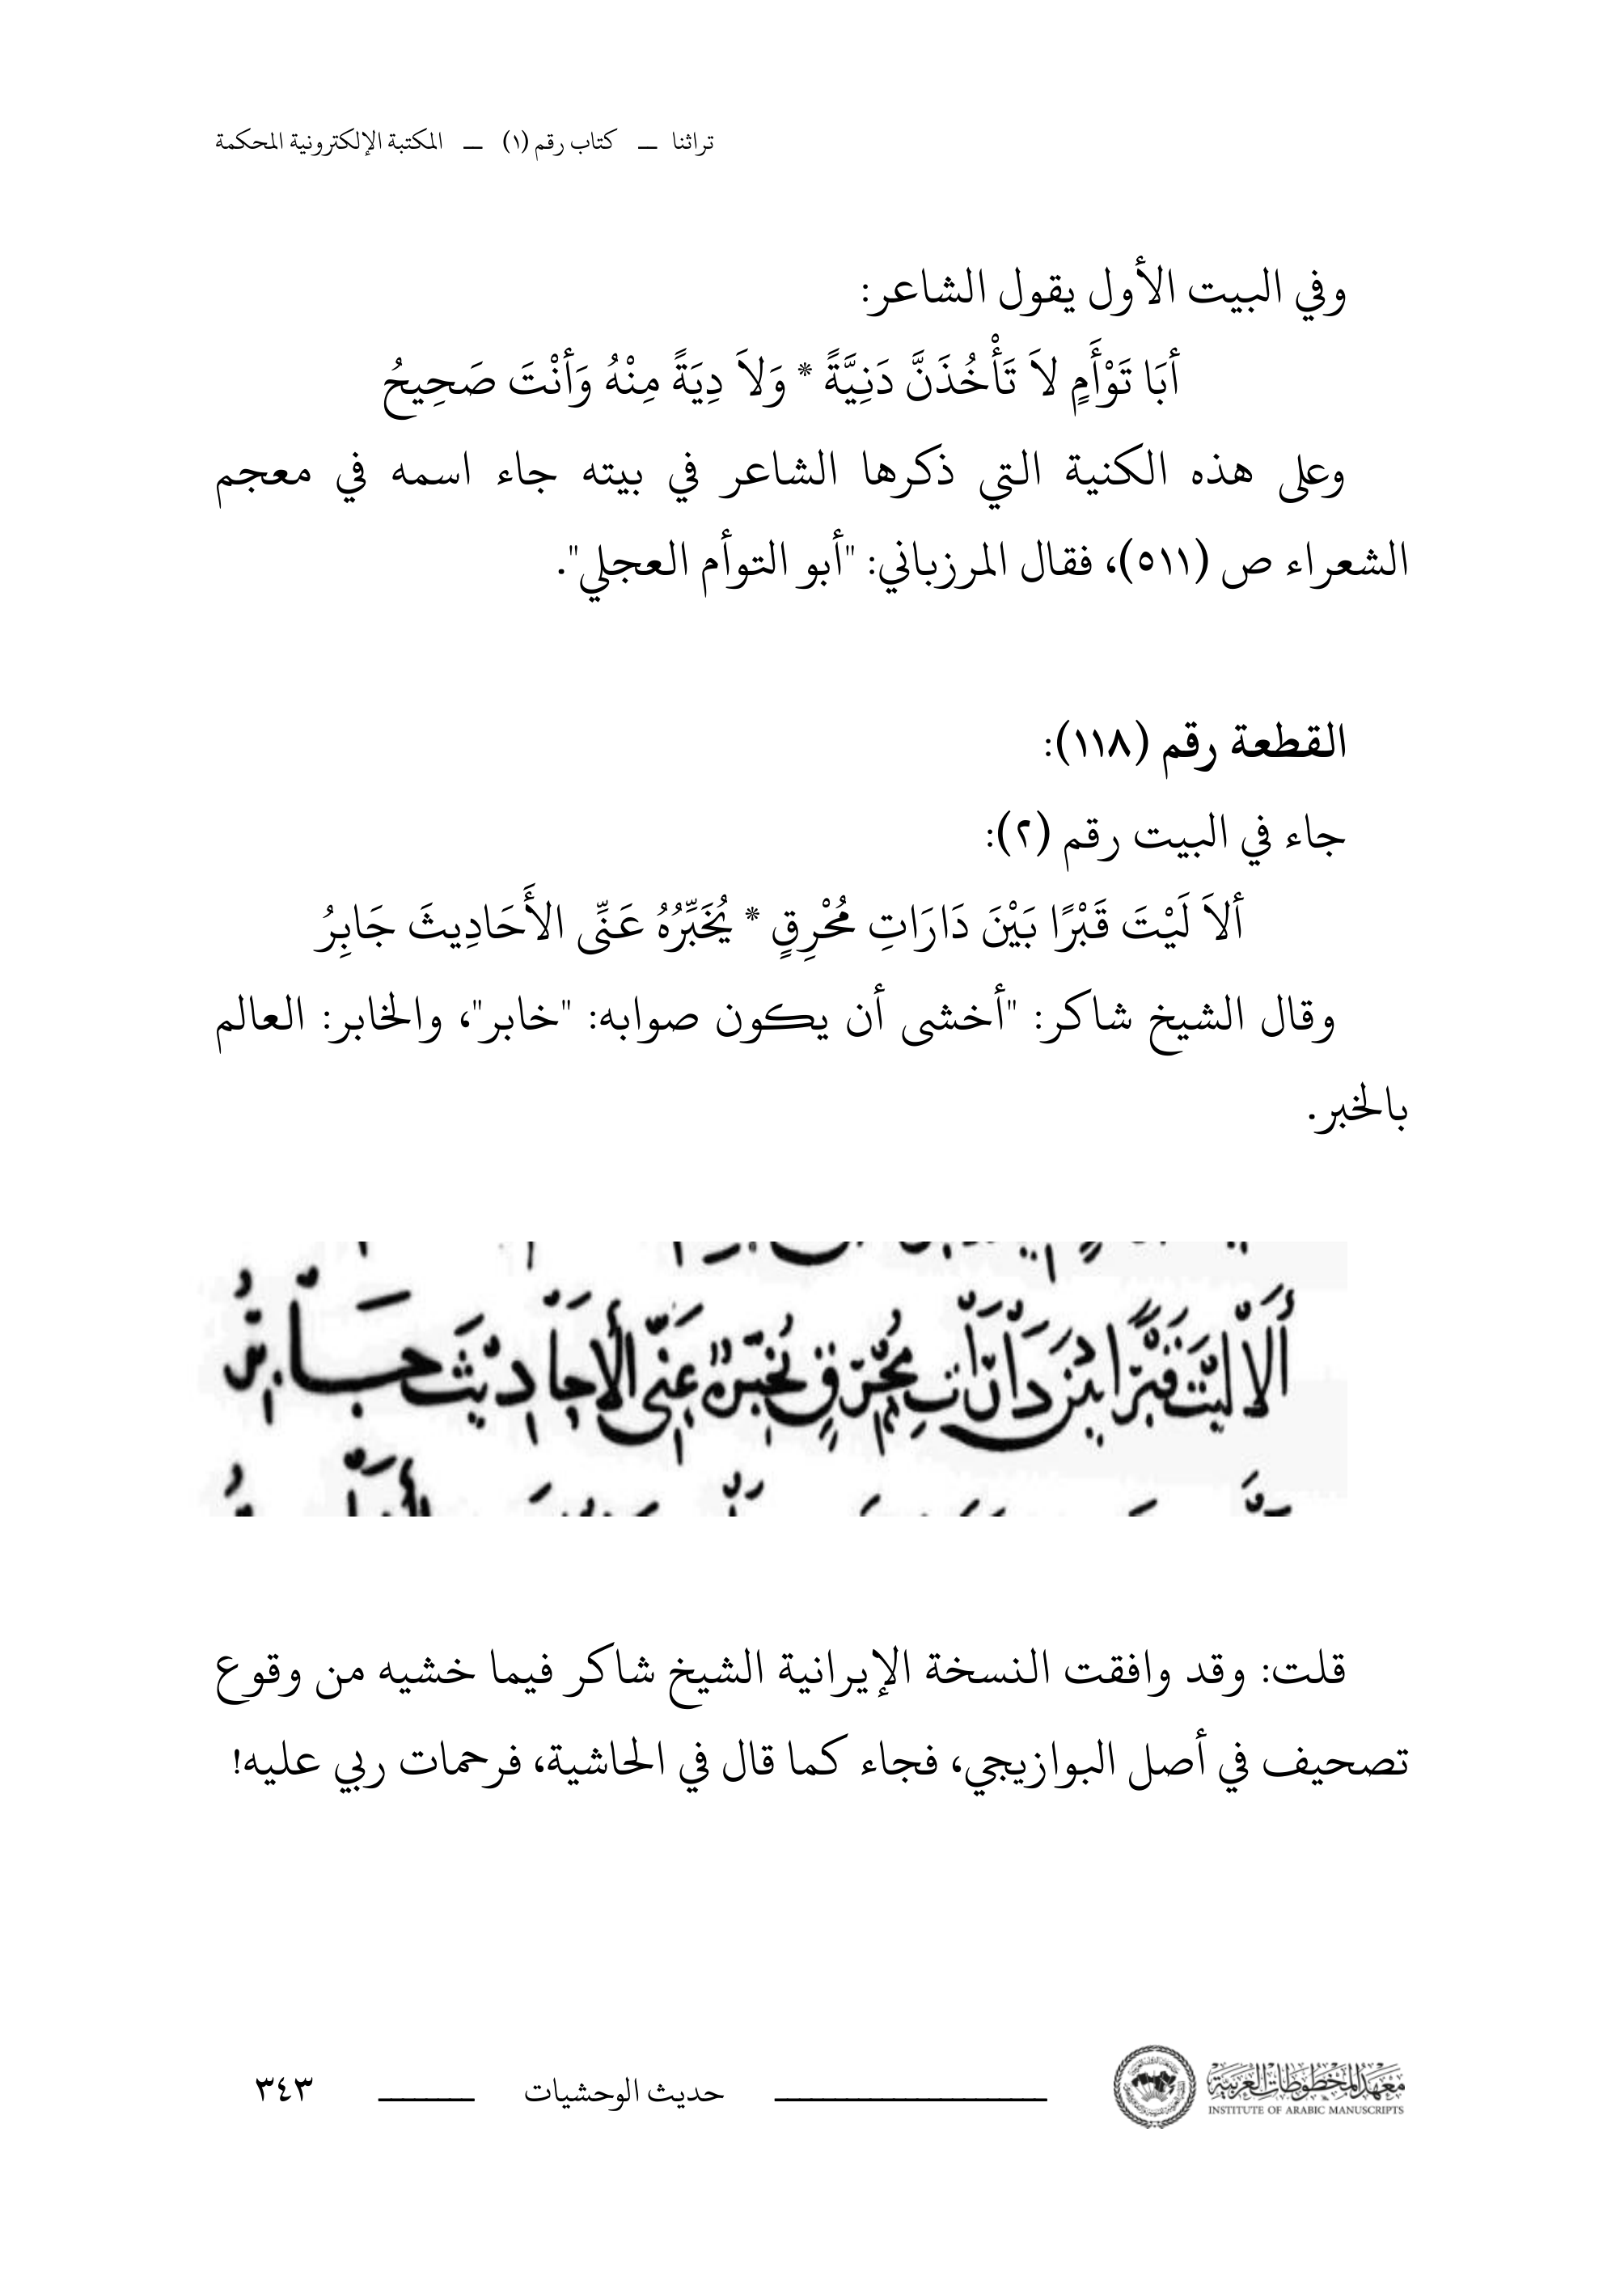 تراثنا — كتاب رقم (١) — المكتبة الإلكترونية المحكمة
وفي البيت الأول يقول الشاعر:
أبَا تَوْأَمٍ لاَ تَأْخُذَنَّ دَنِيَّةً * وَلاَ دِيَةً مِنْهُ وَأنْتَ صَحِيحُ
وعلى هذه الكنية التي ذكرها الشاعر في بيته جاء اسمه في معجم
الشعراء ص (٥١١)، فقال المرزباني: "أبو التوأم العجلي".
القطعة رقم (١١٨):
جاء في البيت رقم (٢):
ألاَ لَيْتَ قَبْرًا بَيْنَ دَارَاتِ مُحْرِقٍ * يُخَبِّرُهُ عَنِّى الأَحَادِيثَ جَابِرُ
وقال الشيخ شاكر: "أخشى أن يكون صوابه: "خابر"، والخابر: العالم
بالخبر.
أَلَا لَيْتَ قَبْرًا بَيْنَ دَارَاتِ مُحْرِقٍ يُخَبِّرُهُ عَنِّي الأَحَادِيثَ خَابِرُ
قلت: وقد وافقت النسخة الإيرانية الشيخ شاكر فيما خشيه من وقوع
تصحيف في أصل البوازيجي، فجاء كما قال في الحاشية، فرحمات ربي عليه!
معهد المخطوطات العربية
INSTITUTE OF ARABIC MANUSCRIPTS
حديث الوحشيات
٣٤٣